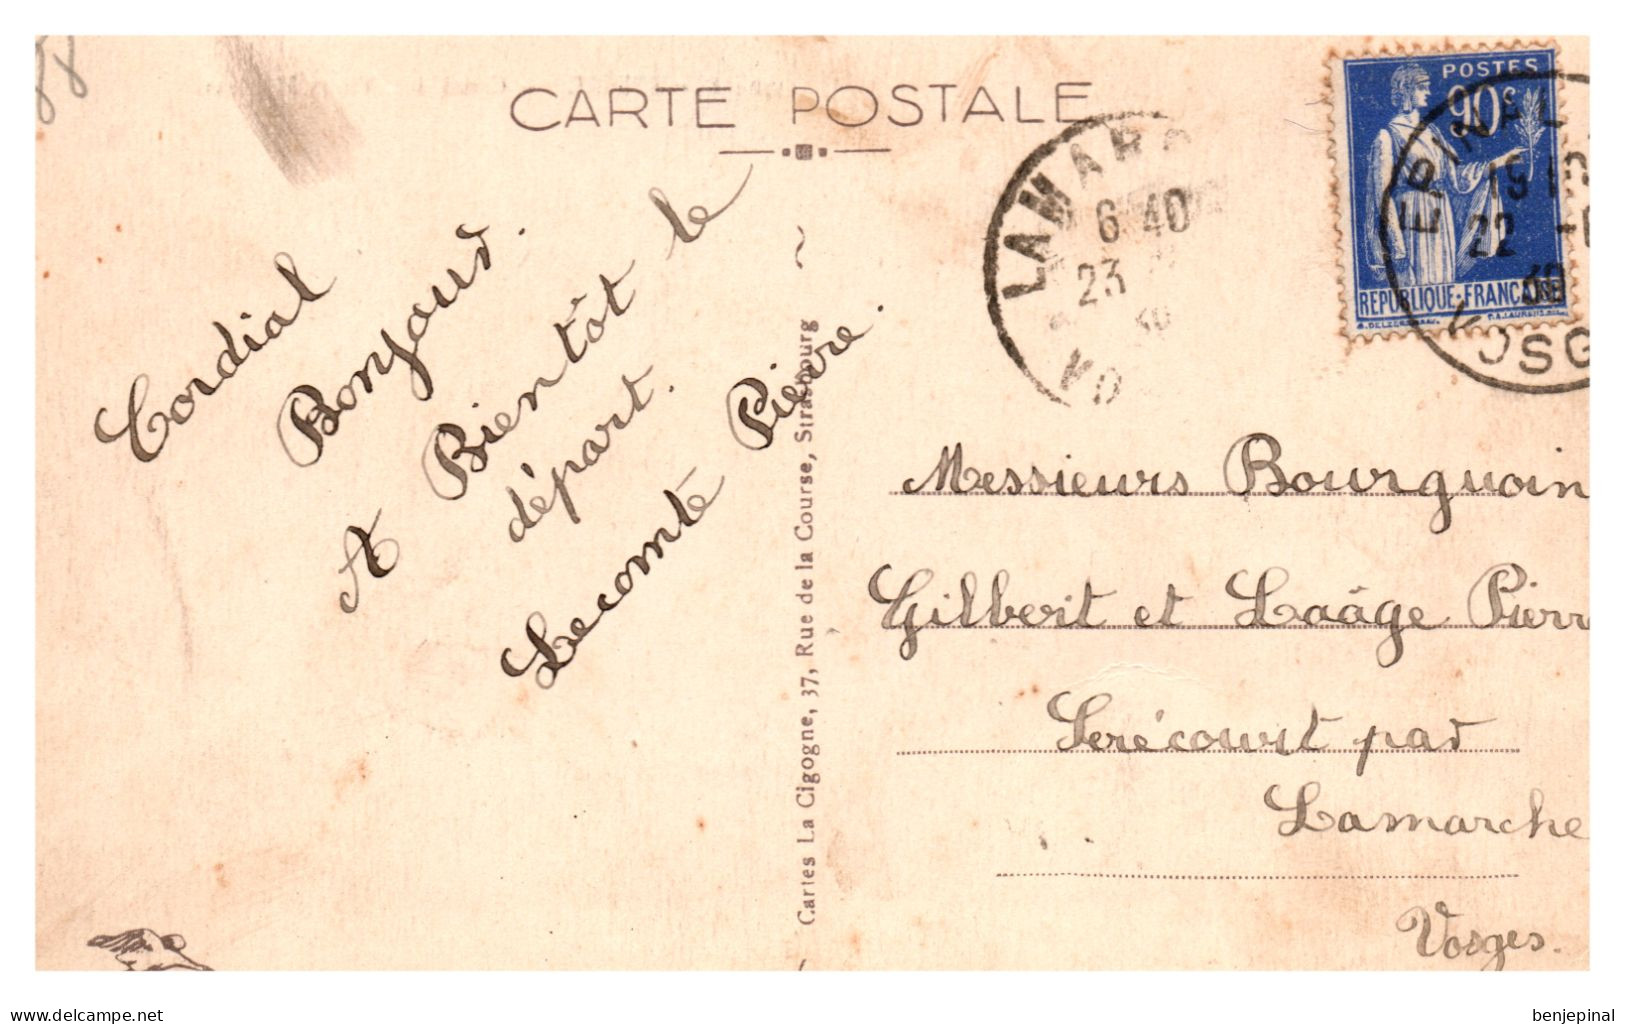 88
CARTE POSTALE
Cordial
Bonjour.
A Bientôt le
départ.
Lecomte Pierre.
Cartes La Cigogne, 37, Rue de la Course, Strasbourg
LAMARC
6 40
23
VO
POSTES
90c
REPUBLIQUE·FRANCAISE
EPINAL
22
VOSG
Messieurs Bourguoin
Gilbert et Laâge Pierr
Serécourt par
Lamarche
Vosges.
www.delcampe.net
benjepinal